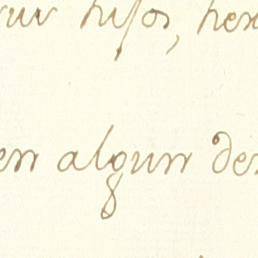 hijos, her
en algun de